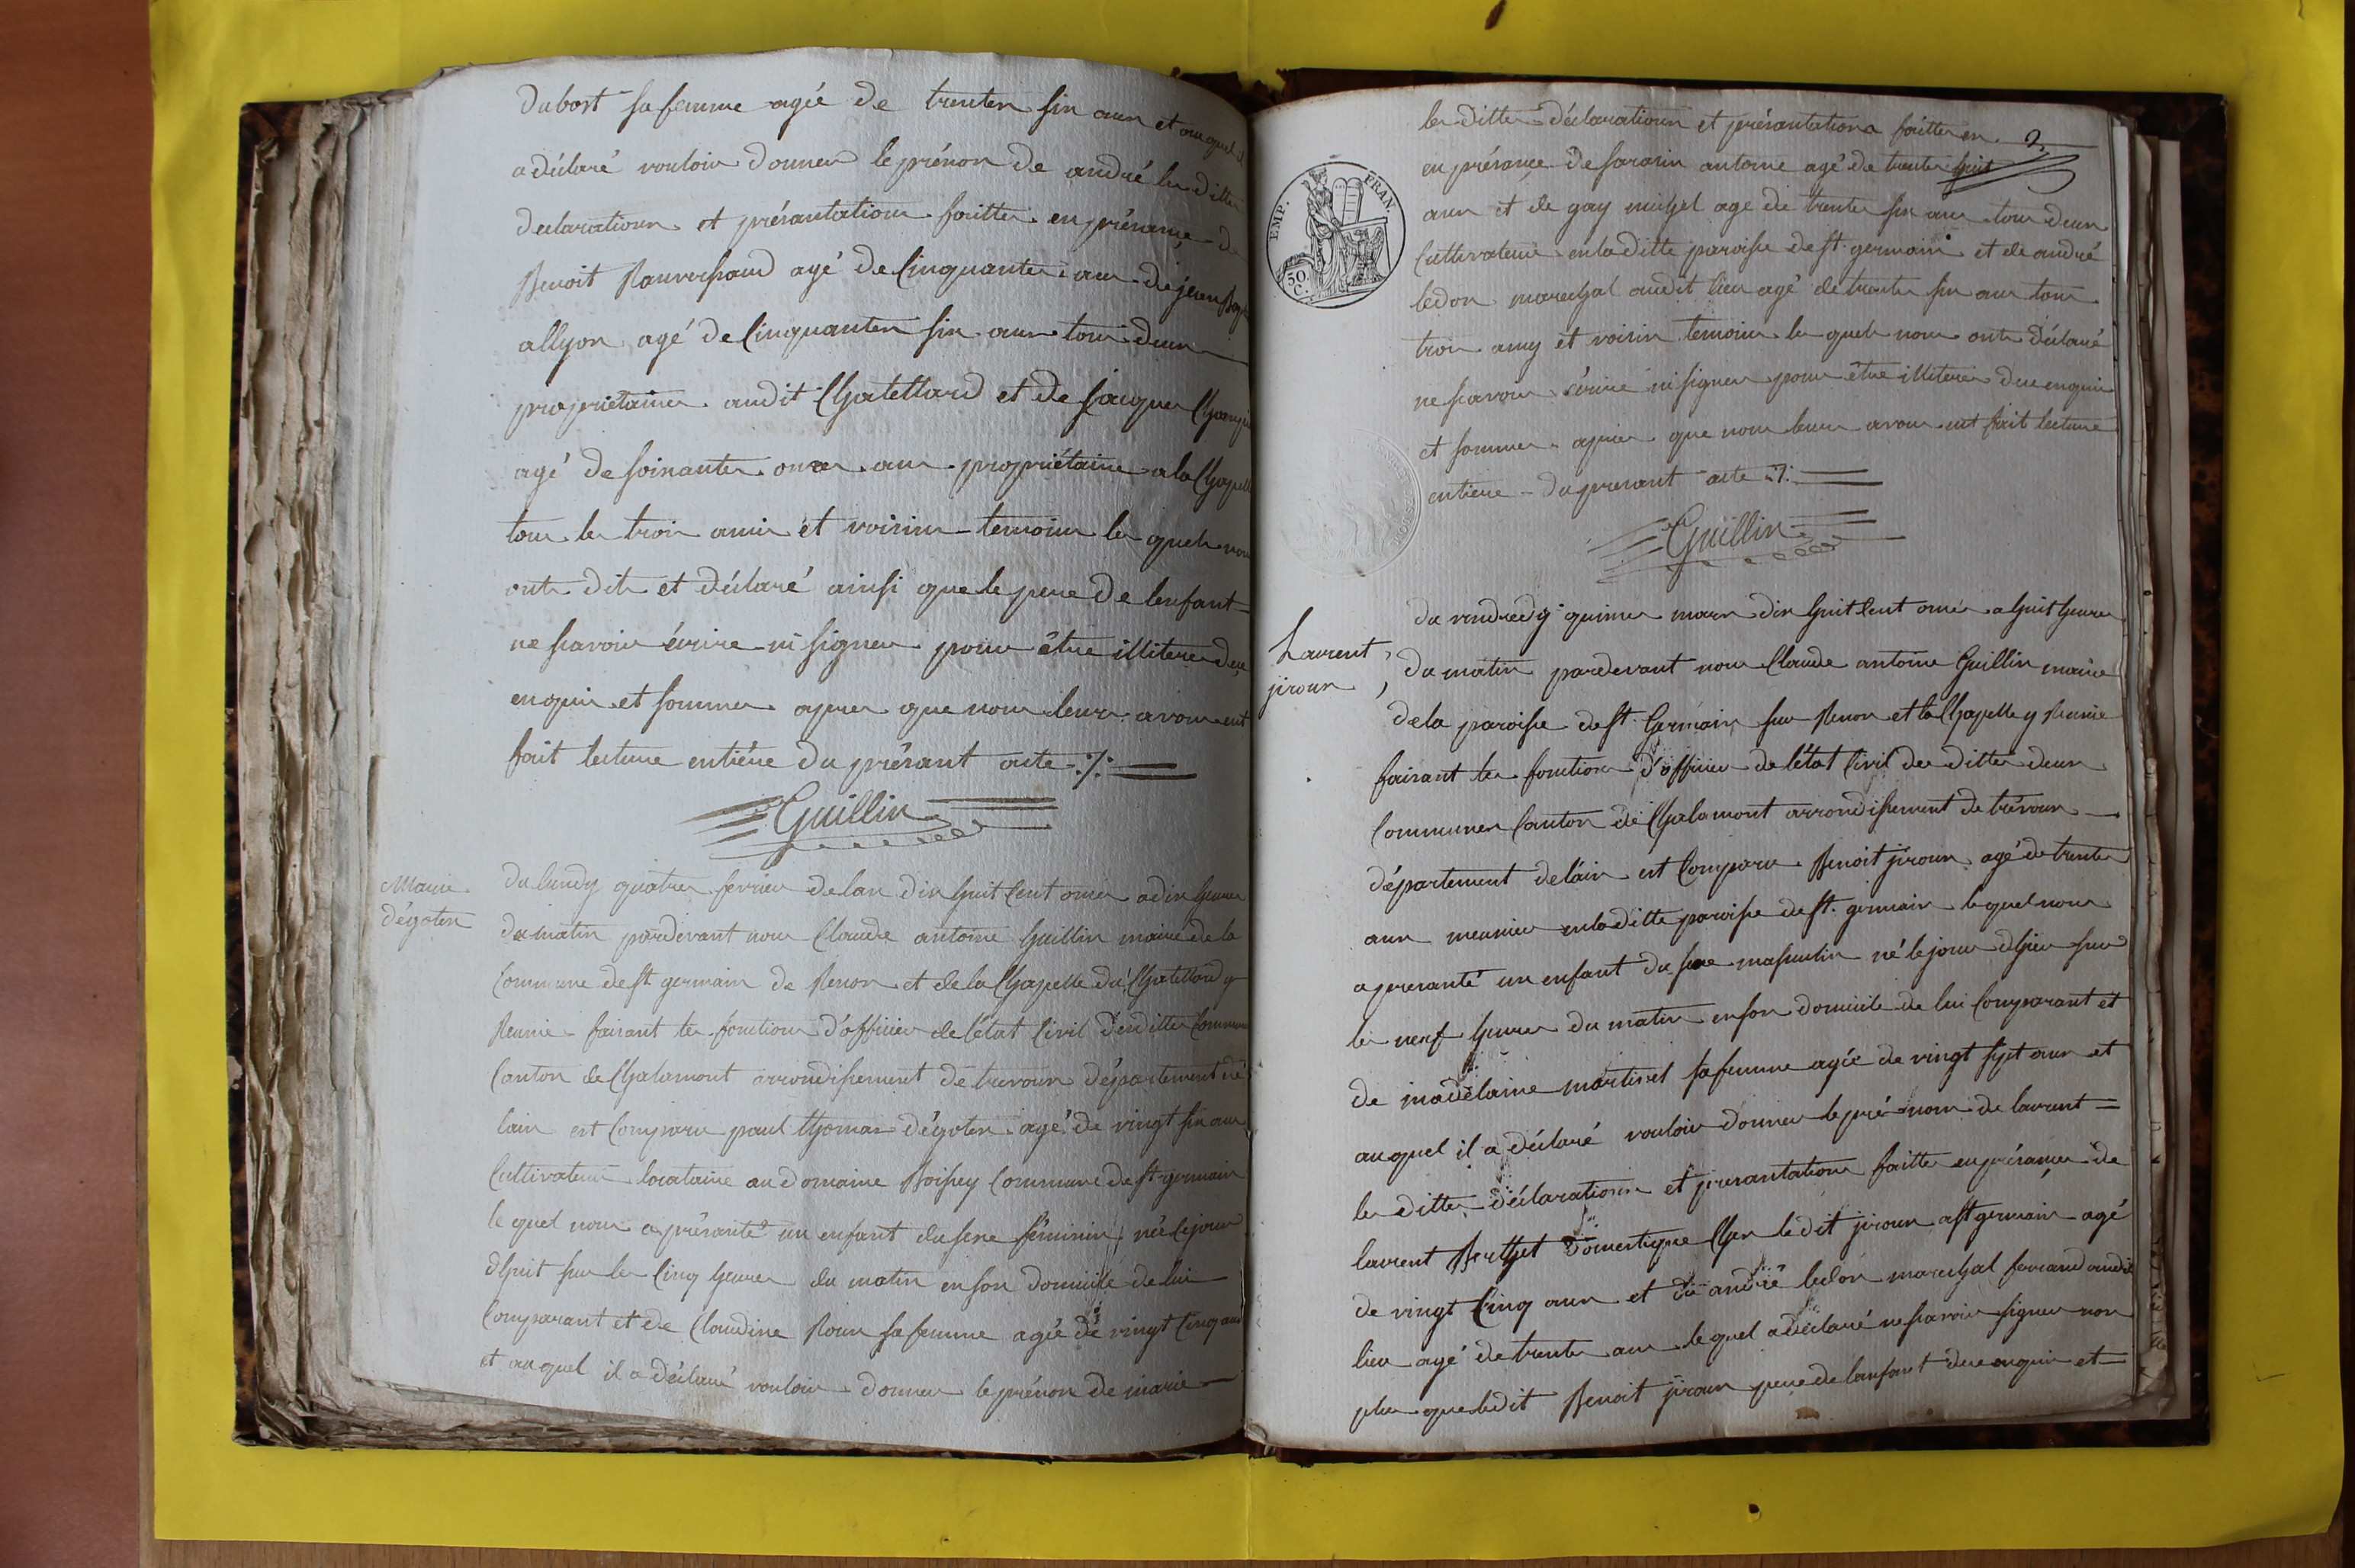 Dubost sa femme agée de trentes six ans et au quel il
a déclaré vouloir donner le prénon de andré les dittes
declarations et présantations faittes en présance de
Benoit agé de Cinquantes ans de jean
allyon agé de Cinquantes six ans tous deux
propriétaires audit Chatellard et de jacques
agé de soixantes onzes ans propriétaire a la Chapelle
tous les trois amis et voisins temoins les quels nous
onts dits et déclaré ainsi que le pere de lenfant
ne scavoir écrire ni signer pour être illiteres de ce
enquis et sommes apres que nous leurs avons eut
fait lecture entiére du présant acte ./.
Guillin
Marie
dégoten
Du lundy quatres fevrier de lan dix huit Cent onze a dix heures
du matin pardevant nous Claude antoine Guillin maire de la
Commune de st germain de Renon et de la Chapelle du Chatellard y
Reunie faisant les fonctions d'officier de létat Civil desdittes Communes
Canton de Chalamont arrondissement de trevoux département de
lain est Comparu paul thomas dégoten agé de vingt six ans
Cultivateur locataire au domaine Boissey Commune de st germain
le quel nous a présanté un enfant du sexe féminin née le jour
dhuit sur les Cinq heures du matin en son domicile de lui
Comparant et de Claudine Roux sa femme agée de vingt Cinq ans
et au quel il a déclaré vouloir donner le prénon de marie
2
les dittes déclarations et présantations faittes en
en présance de sarasin antoine agé de trentes huit
ans et de gay michel age de trentes six ans tous deux
Cultivateurs en la ditte paroisse de st germain et de andré
ledon marechal audit lieu agé de trentes six ans tous
trois amy et voisin temoins les quels nous onts déclaré
ne scavoir écrire ni signer pour être illiteres de ce enquis
et sommes apries que nous leurs avons eut fait lecture
entiere du presant acte ./.
Guillin
EMP. FRAN.
50. C.
Laurent
jiroux
du vendredy quinzes mars dix huit Cent onzes a huit heures
du matin pardevant nous Claude antoine Guillin maire
de la paroisse de st Germain sur Renon et la Chapelle y Reunie
faisant les fonctions d'officier de létat Civil des dittes deux
Communes Canton de Chalamont arrondissement de trévoux
département de láin est Comparu Benoit jiroux agé de trentes
ans meunier en la ditte paroisse de st. germain le quel nous
a presanté un enfant du sexe masculin né le jour dhier sur
les neuf heures du matin en son domicile de lui Comparant et
de madelaine martinet sa femme agée de vingt sept ans et
au quel il a déclaré vouloir donner le pré nom de laurent =
les dittes déclarations et presantations faittes en présances de
laurent Berthet domestique Chez ledit jiroux a st germain agé
de vingt Cinq ans et de andré ledon marechal ferrand audit
lieu agé de trentes ans le quel a déclaré ne scavoir signer non
plus que ledit Benoit jiroux pere de lanfant de ce enquis et